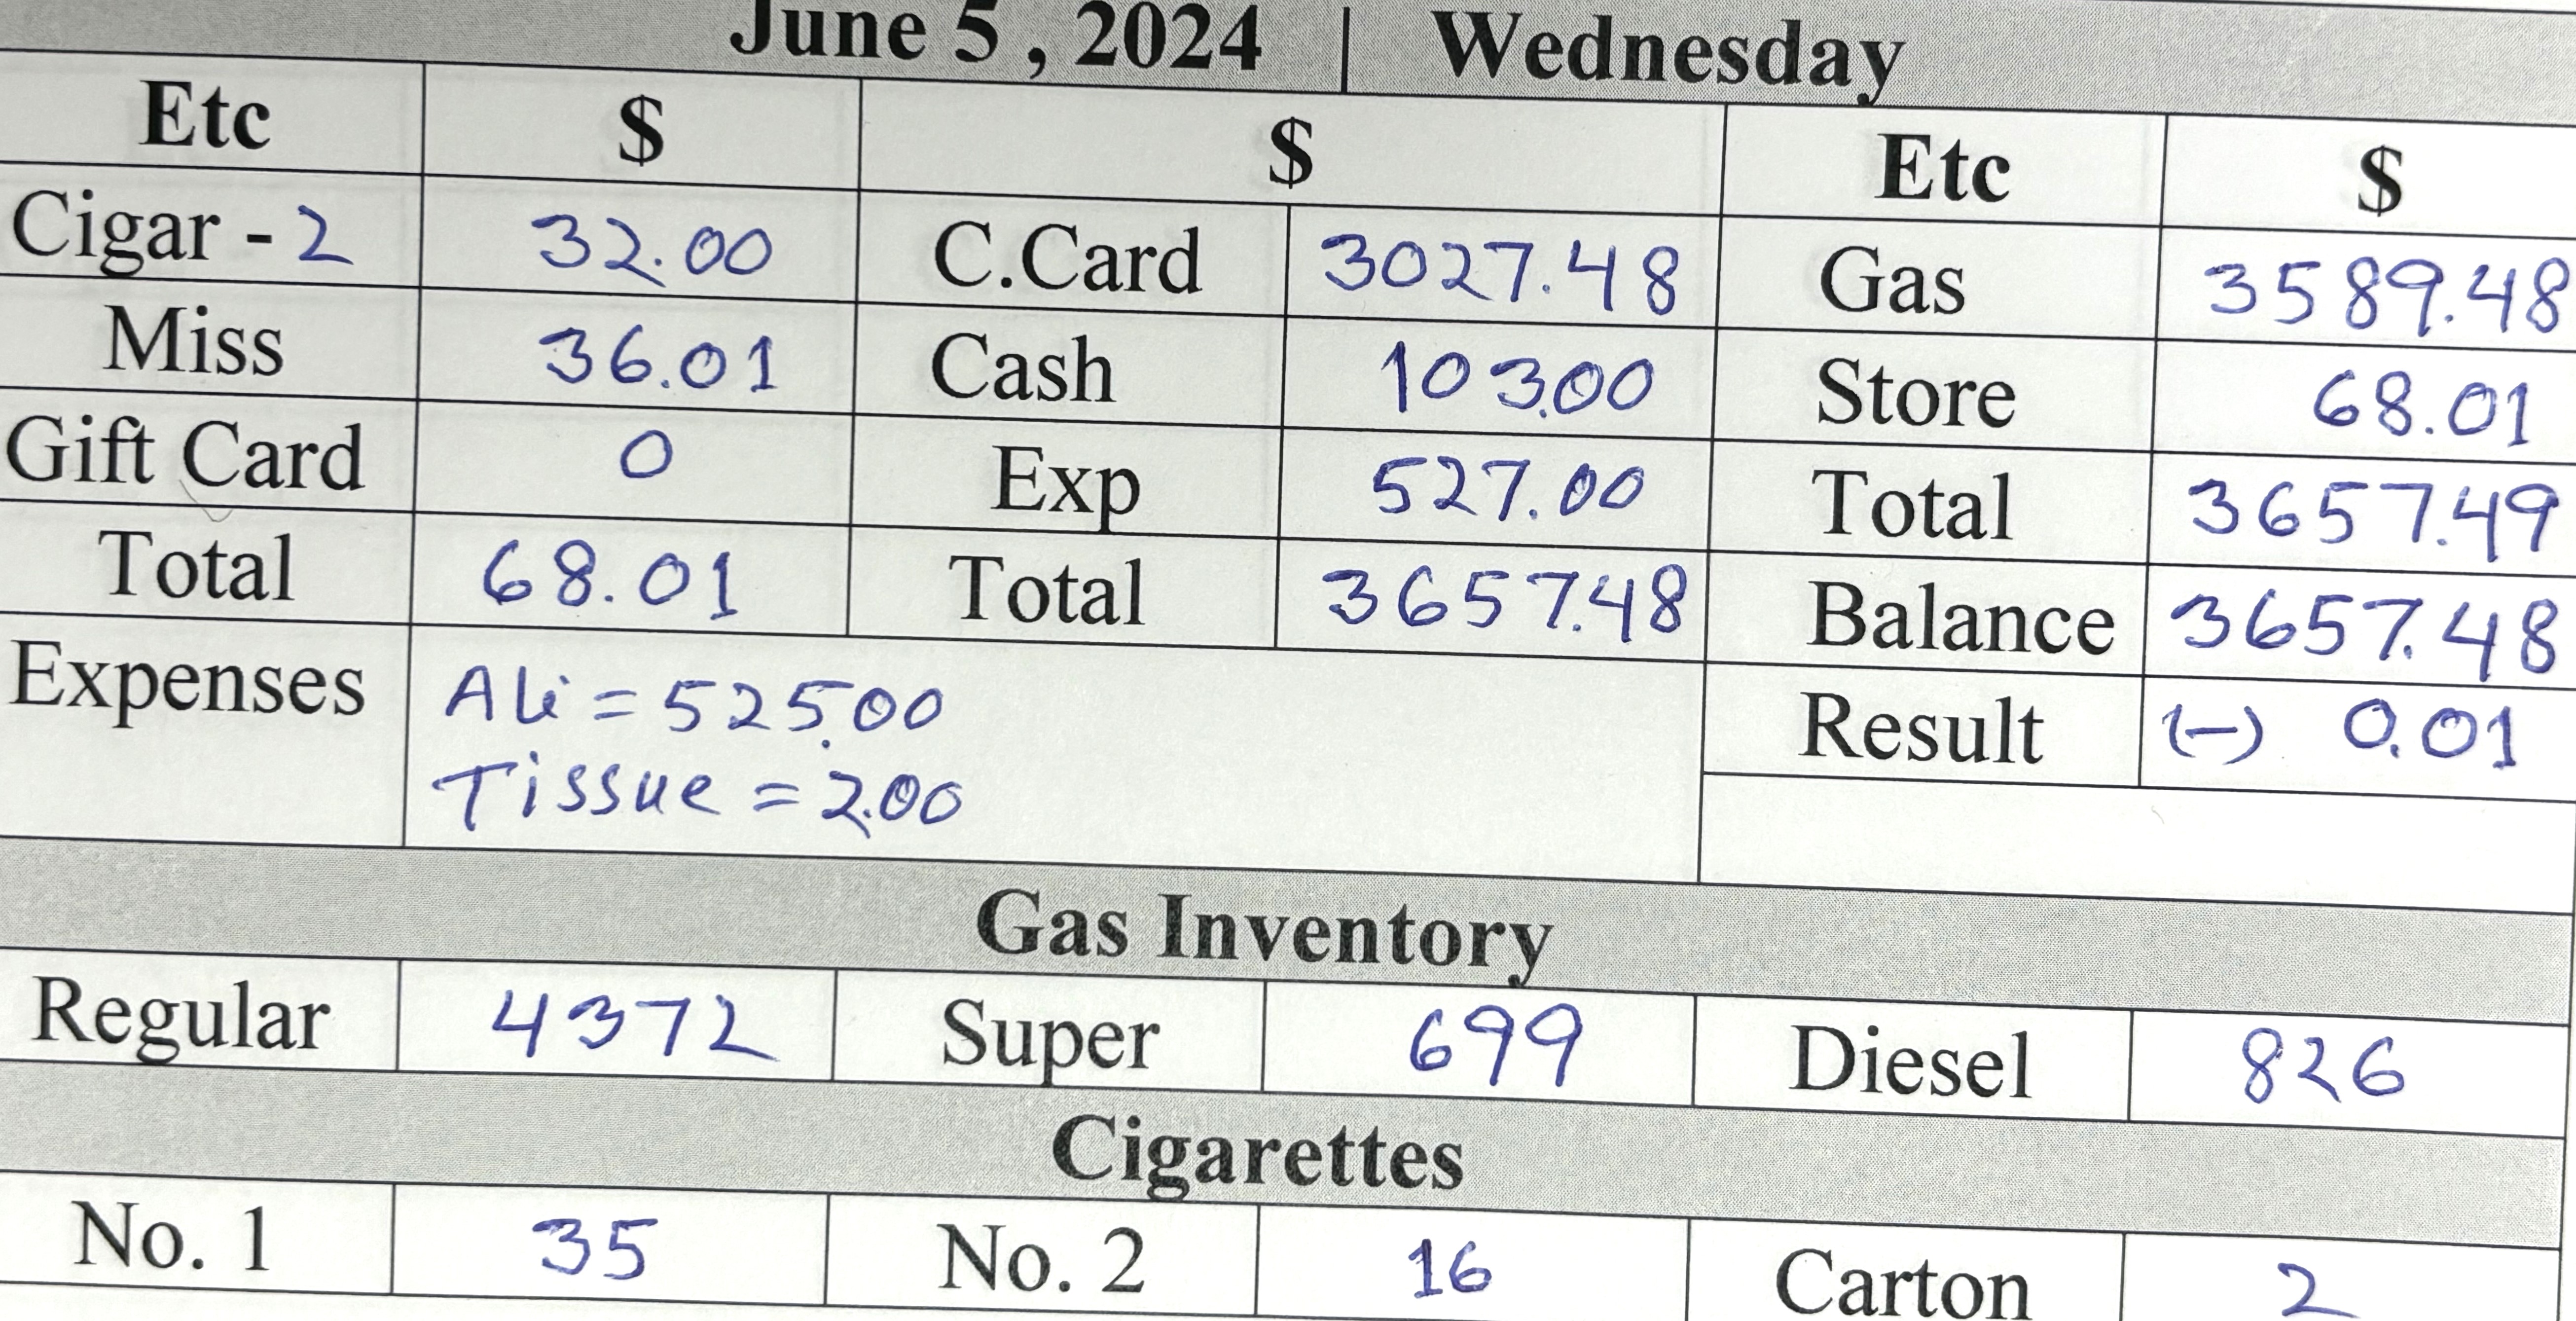 June 5 , 2024 | Wednesday
Etc $ $ Etc $
Cigar - 2 32.00 C.Card 3027.48 Gas 3589.48
Miss 36.01 Cash 103.00 Store 68.01
Gift Card 0 Exp 527.00 Total 3657.49
Total 68.01 Total 3657.48 Balance 3657.48
Expenses Ali = 525.00 Result (-) 0.01
Tissue = 2.00
Gas Inventory
Regular 4372 Super 699 Diesel 826
Cigarettes
No. 1 35 No. 2 16 Carton 2